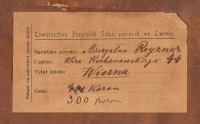 Towarzystwo Przyjaciół Sztuk pięknych we Lwowie
Nazwisko artysty: Mieczysław Reyzner
i adres: Ulica Kochanowskiego 44
Tytuł dzieła: Wiosna
Cena: Koron
300 Koron